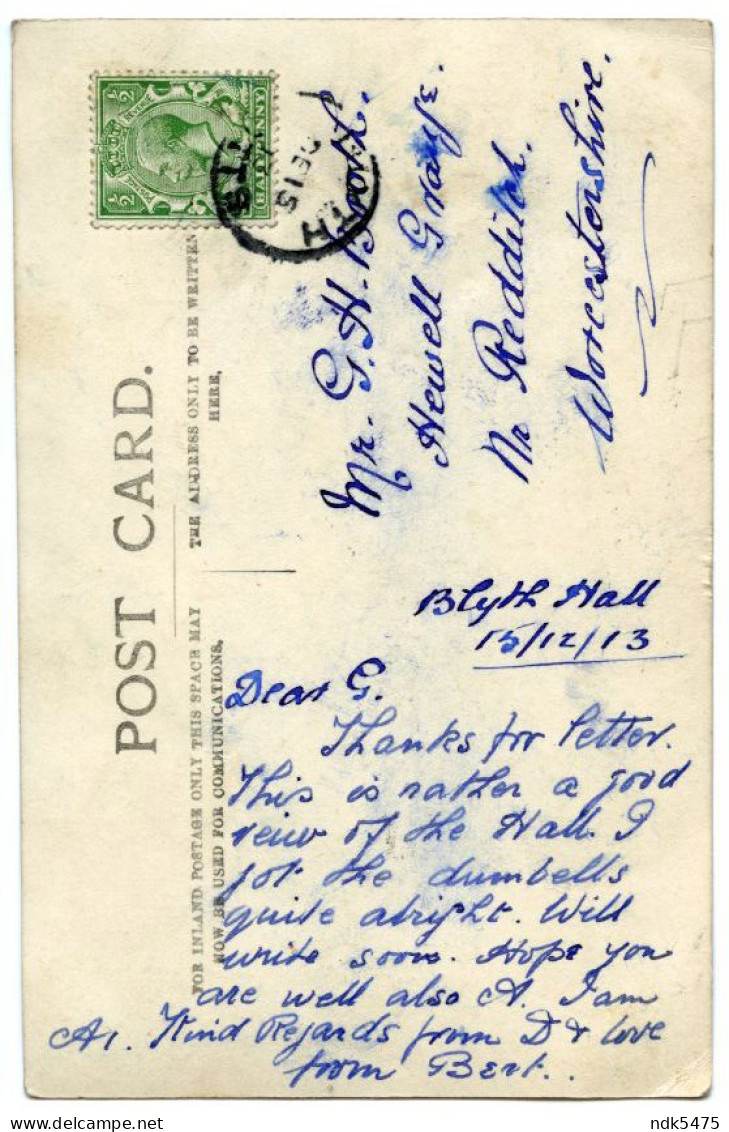 POST CARD.
FOR INLAND POSTAGE ONLY THIS SPACE MAY
NOW BE USED FOR COMMUNICATIONS.
THE ADDRESS ONLY TO BE WRITTEN
HERE.
POSTAGE REVENUE
½ ½
HALFPENNY
DE 15
Mr. G. H. 
Hewell Grange.
Nr Redditch.
Worcestershire.
Blyth Hall
15/12/13
Dear G.
Thanks for letter.
This is rather a good
veiw of the Hall. I
got the dumbells
quite alright. Will
write soon. Hope you
are well also A. I am
A1. Kind Regards from D & love
from Bert..
ndk5475